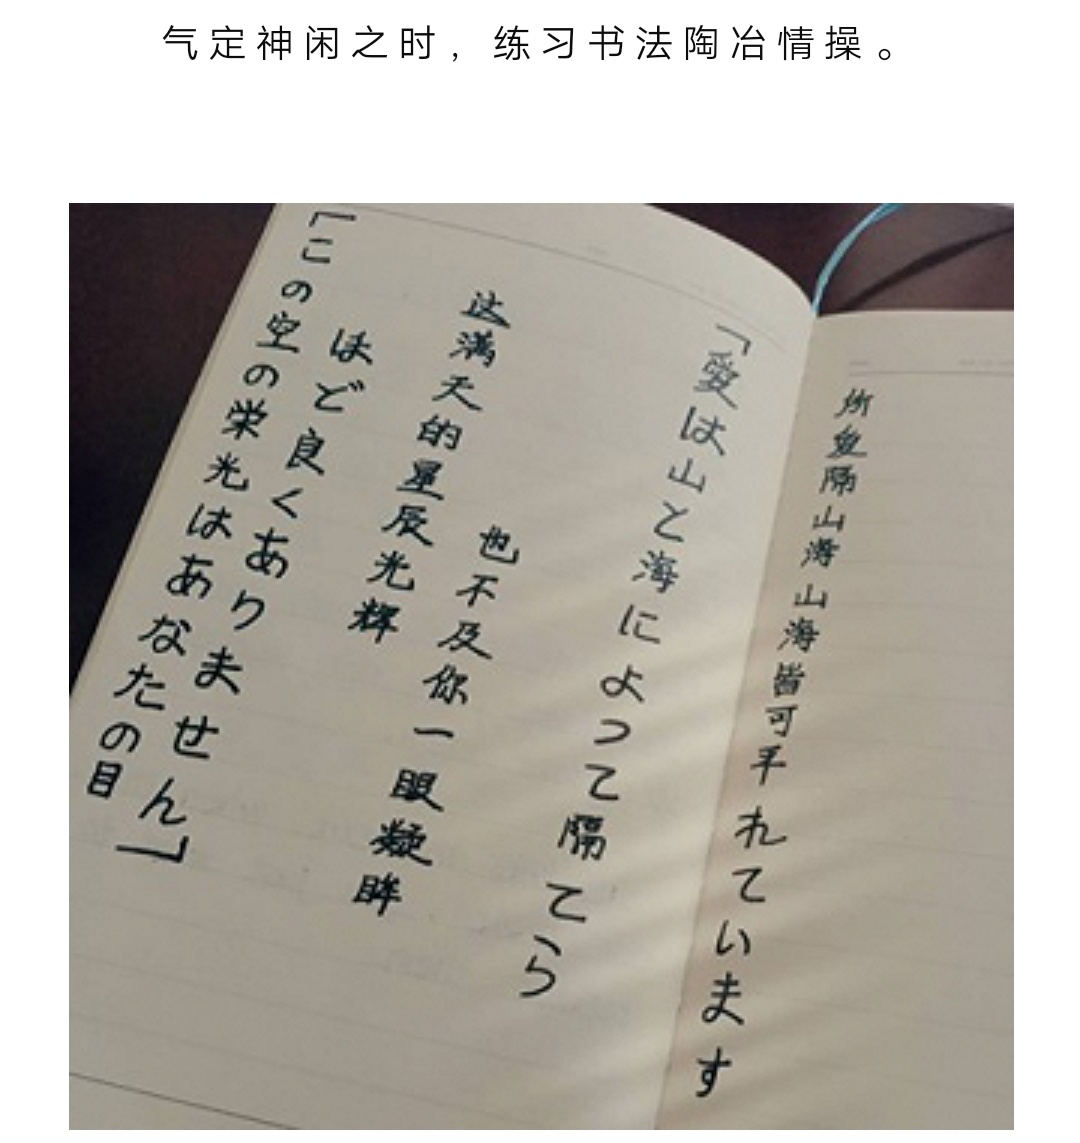 气定神闲之时，练习书法陶冶情操。
「この空の栄光はあなたの目
ほど良くありません」
这满天的星辰光辉
也不及你一眼凝眸
「愛は山と海によって隔てら
れています
所爱隔山海山海皆可平